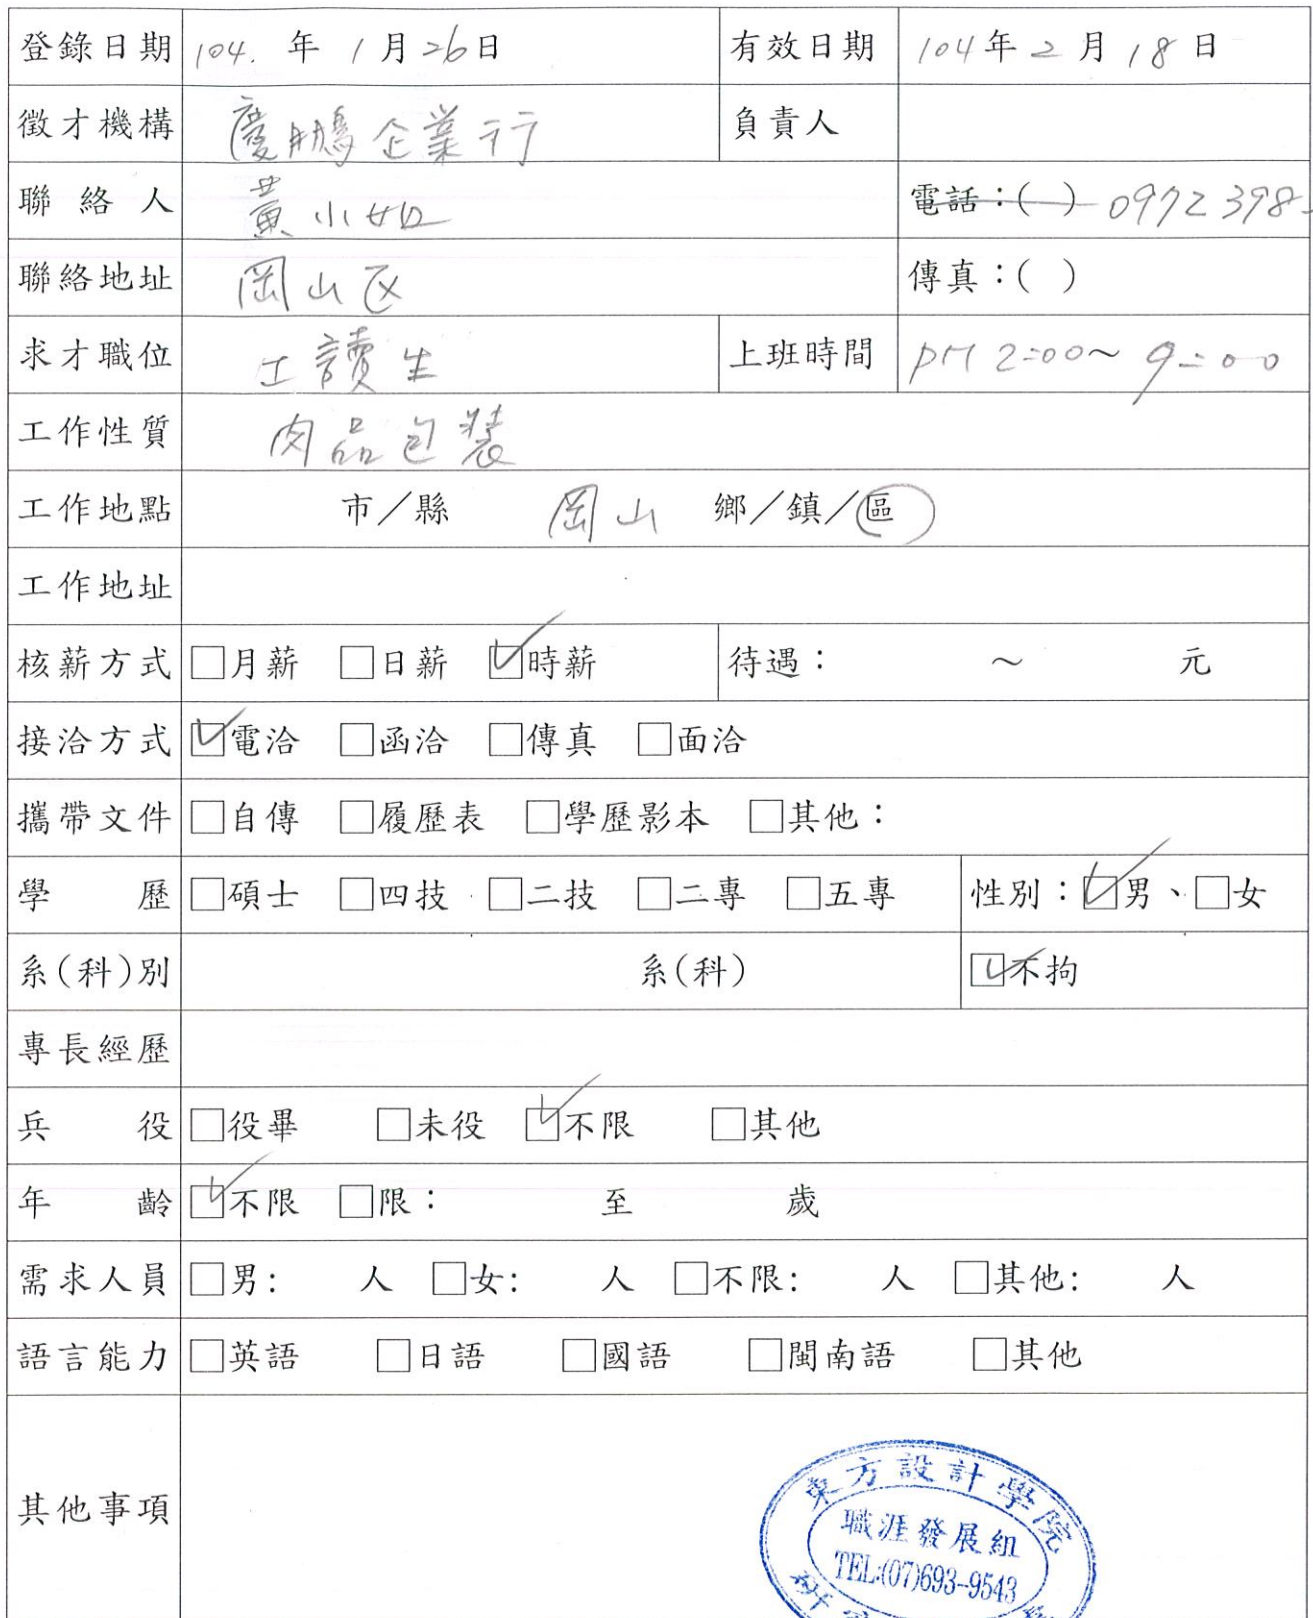 登錄日期 104. 年 1 月 26 日 有效日期 104 年 2 月 18 日
徵才機構 慶鵬企業行 負責人
聯絡人 黃小姐 電話：( ) 0972 398-
聯絡地址 岡山区 傳真：( )
求才職位 工讀生 上班時間 PM 2:00～9:00
工作性質 肉品包裝
工作地點 市／縣 岡山 鄉／鎮／區
工作地址
核薪方式 □月薪 □日薪 ☑時薪 待遇： ～ 元
接洽方式 ☑電洽 □函洽 □傳真 □面洽
攜帶文件 □自傳 □履歷表 □學歷影本 □其他：
學歷 □碩士 □四技 □二技 □二專 □五專 性別：☑男、□女
系(科)別 系(科) ☑不拘
專長經歷
兵役 □役畢 □未役 ☑不限 □其他
年齡 ☑不限 □限： 至 歲
需求人員 □男: 人 □女: 人 □不限: 人 □其他: 人
語言能力 □英語 □日語 □國語 □閩南語 □其他
其他事項
東方設計學院
職涯發展組
TEL:(07)693-9543